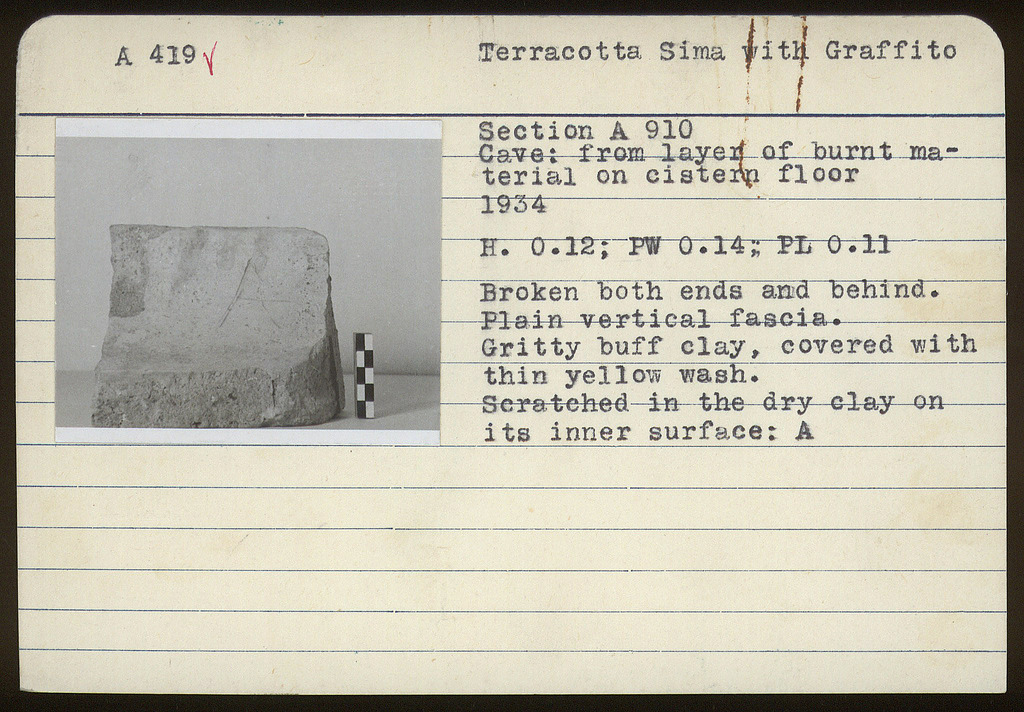 A 419
Terracotta Sima with Graffito
Section A 910
Cave: from layer of burnt ma-
terial on cistern floor
1934
H. 0.12; PW 0.14; PL 0.11
Broken both ends and behind.
Plain vertical fascia.
Gritty buff clay, covered with
thin yellow wash.
Scratched in the dry clay on
its inner surface: A